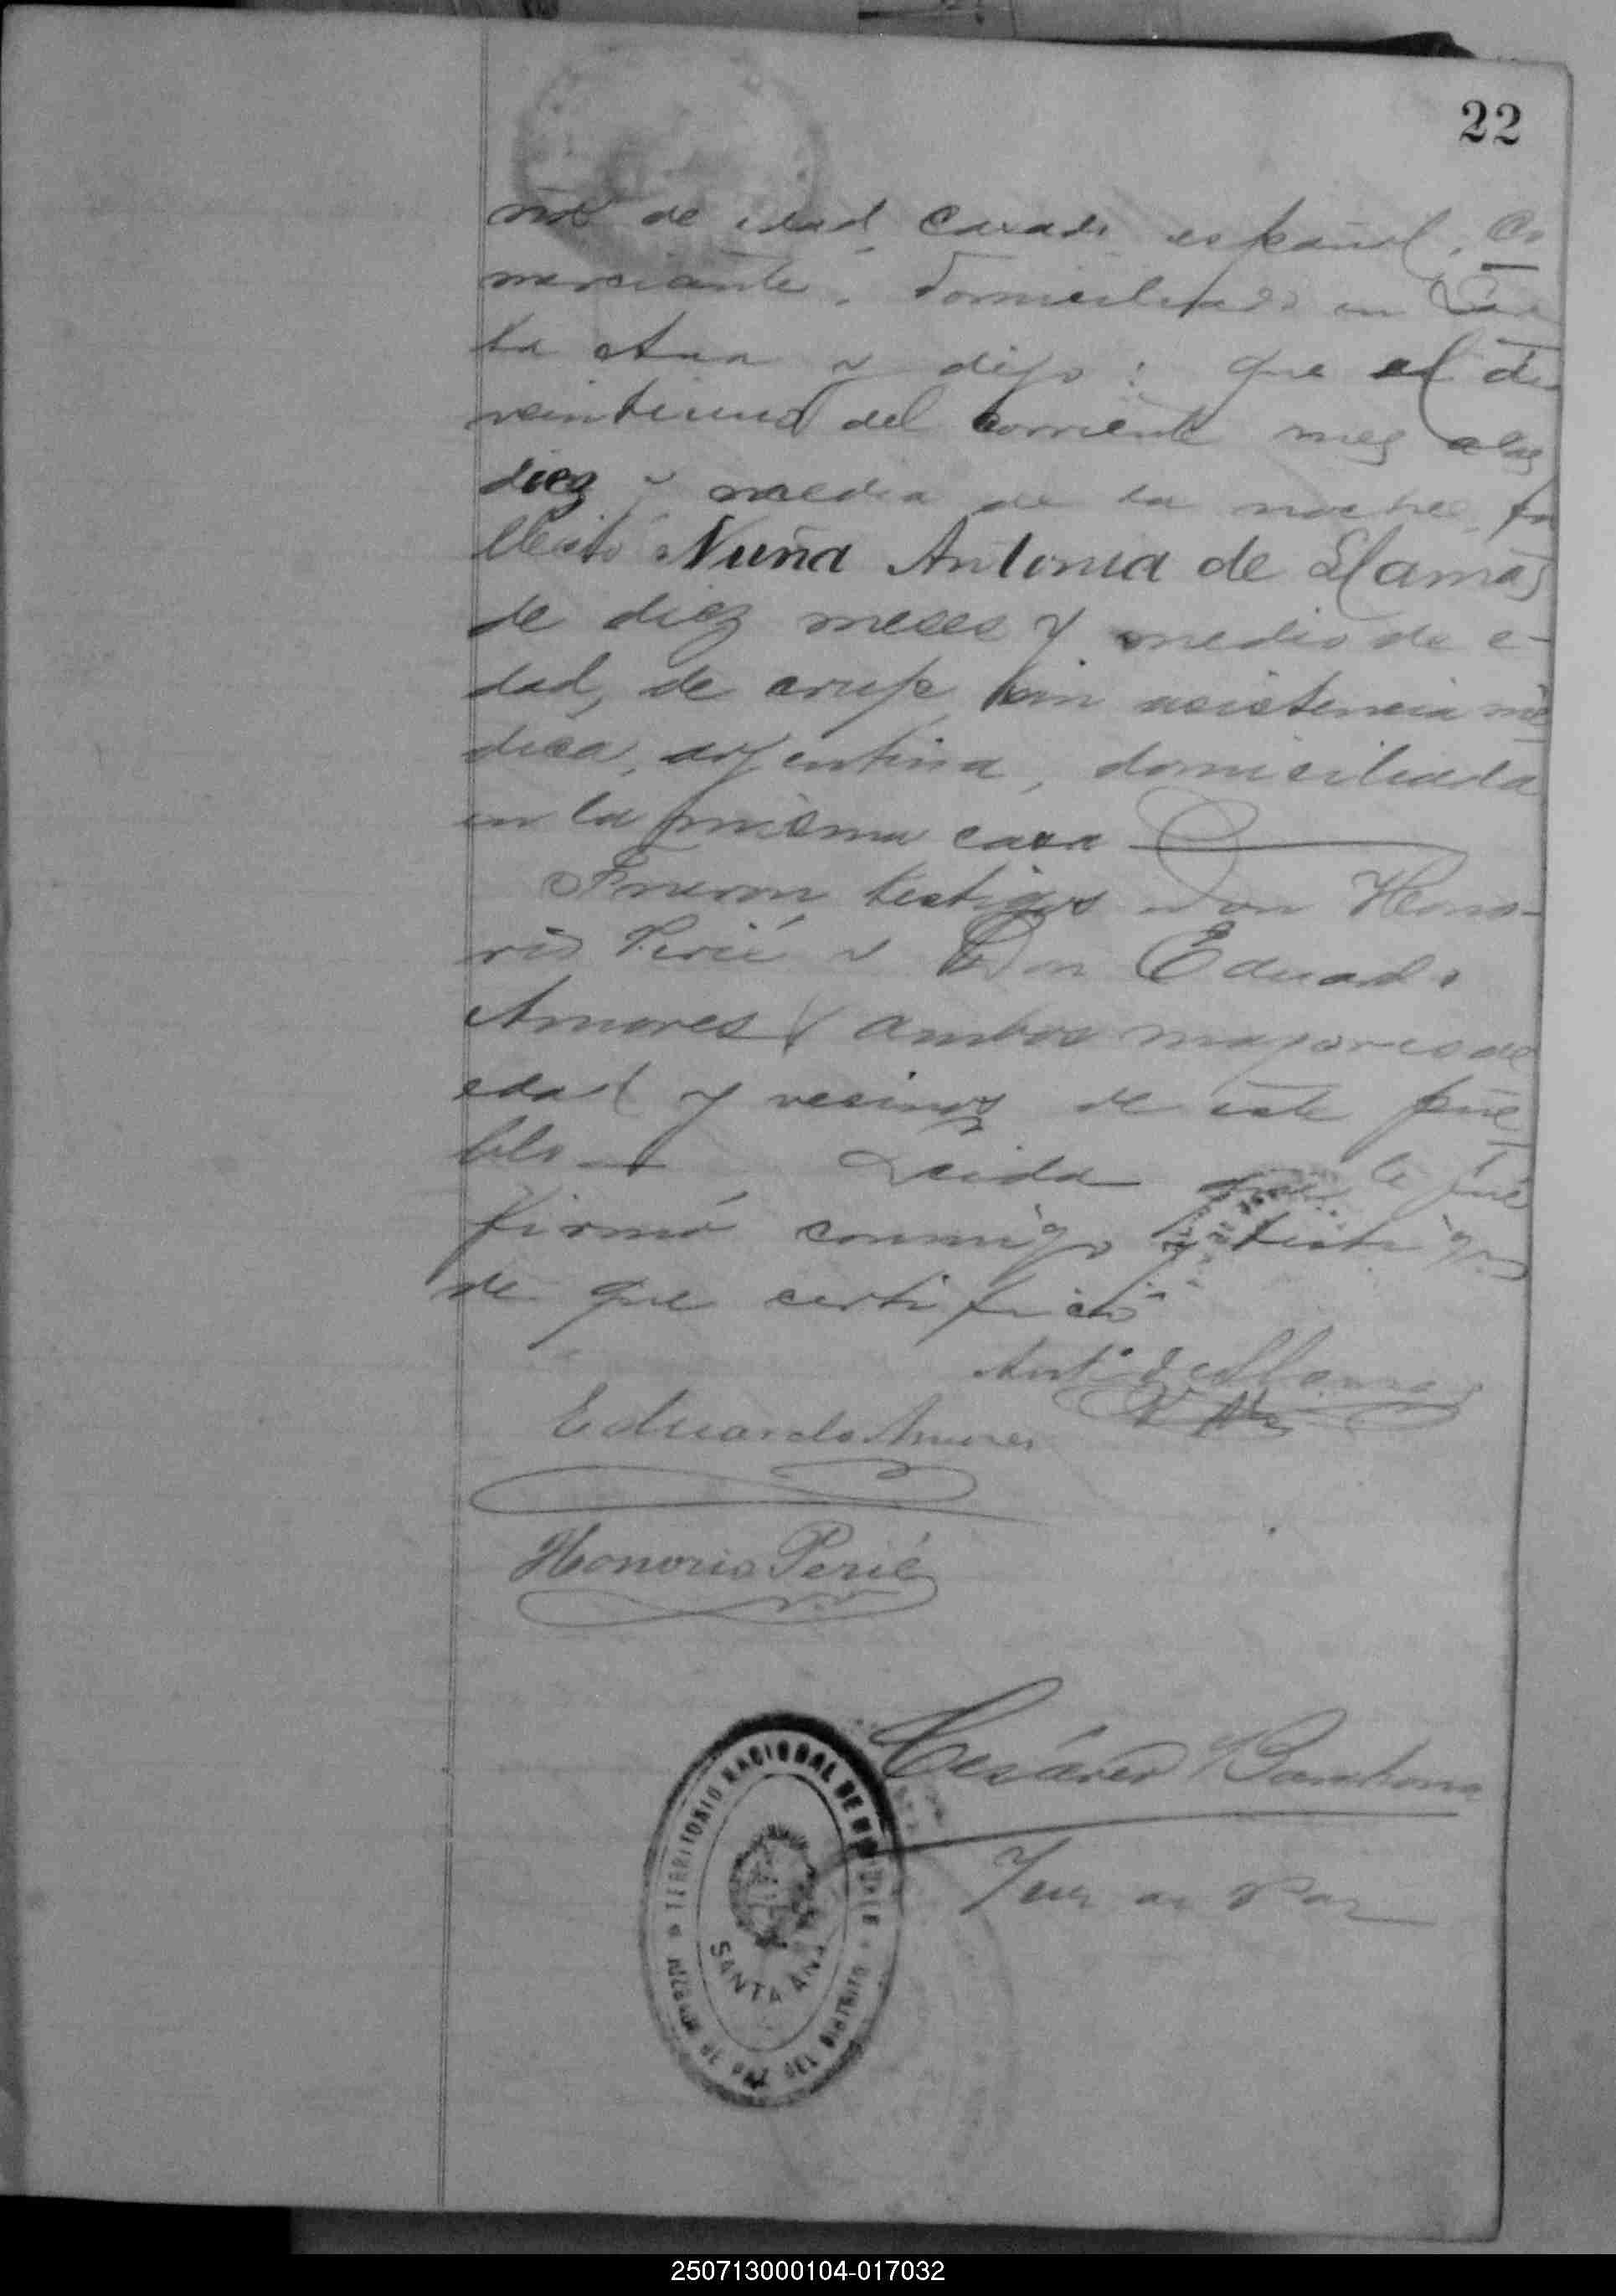 22
ños de edad, casado español, co
merciante, domiciliado en San
ta Ana y dijo: que el dia
veintiuno del corriente mes a las
diez y media de la noche, fa
lleció Nuña Antonia de Llamas
de diez meses y medio de e-
dad, de crup, sin asistencia mé
dica, argentina, domiciliada
en la misma casa
Fueron testigos Don Hono-
rio Perié y Don Eduardo
Amores, ambos mayores de
edad y vecinos de este pue
blo Leida que le fué
firmó conmigo y testigos
de que certifico
Ant.º de Llamas
Eduardo Amores
Honorio Perié
Cesáreo
Juez de Paz
TERRITORIO NACIONAL DE MISIONES
SANTA ANA
JUZGADO DE PAZ DEL DISTRITO
250713000104-017032